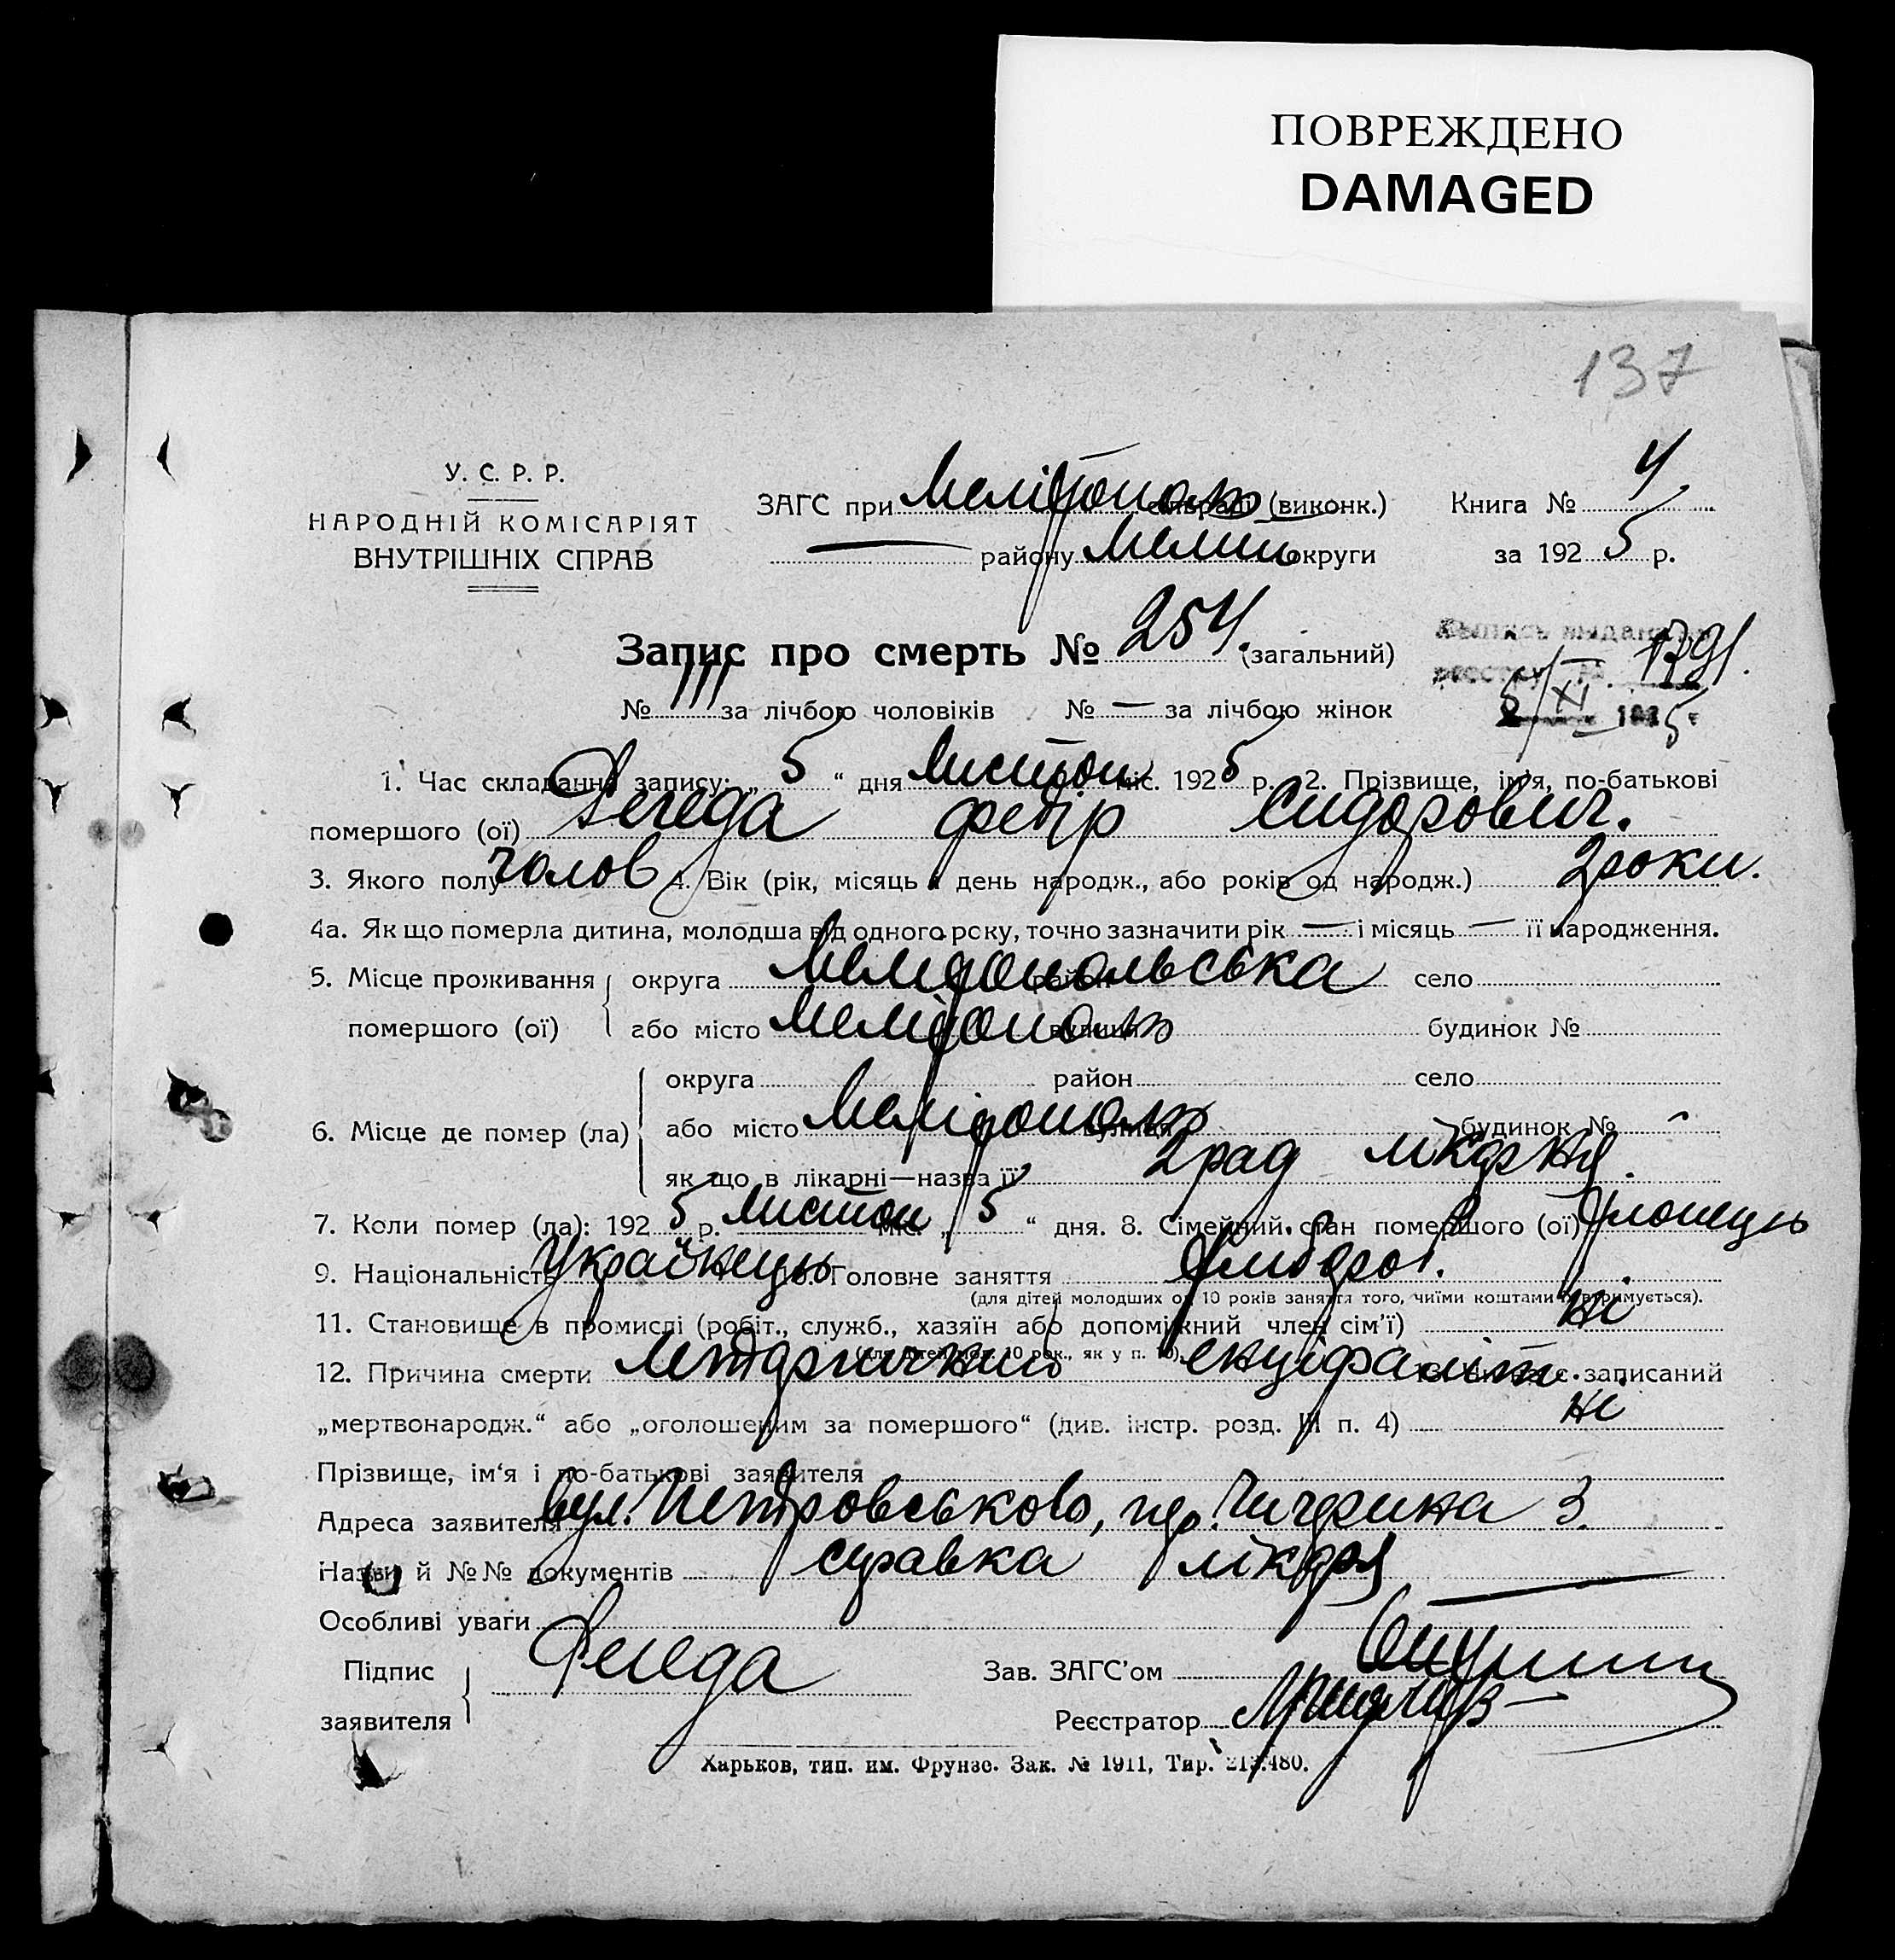 ПОВРЕЖДЕНО
DAMAGED
137
У. С. Р. Р.
НАРОДНІЙ КОМІСАРІЯТ
ВНУТРІШНІХ СПРАВ
ЗАГС при Мелітополь (виконк.) Книга № 4
району Мелит округи за 1925 р.
Запис про смерть № 254. (загальний)
№ 111 за лічбою чоловіків № — за лічбою жінок
Выпись выдана
реестру 1791.
5/XI 1925 г
1. Час складання запису: „5“ дня листоп міс. 1925 р. 2. Прізвище, ім'я, по-батькові
помершого (ої) Федір Сидорович.
3. Якого полу чолов 4. Вік (рік, місяць і день народж., або років од народж.) 2 роки.
4а. Як що померла дитина, молодша від одного року, точно зазначити рік — і місяць — її народження.
5. Місце проживання округа Мелітопольська район село
помершого (ої) або місто Мелітополь вулиця будинок №
округа район село
6. Місце де помер (ла) або місто Мелітополь вулиця будинок №
як що в лікарні—назва її 2 рад лікарня.
7. Коли помер (ла): 1925 р. листоп міс. „5“ дня. 8. Сімейний стан помершого (ої) хлопець
9. Національність Українець 10. Головне заняття хлібороб.
(для дітей молодших од 10 років заняття того, чиїми коштами утримується).
11. Становище в промислі (робіт., служб., хазяїн або допоміжний член сім'ї) ні
(для дітей мол. 10 рок., як у п. 10)
12. Причина смерти летаргичний енцефаліт. є записаний
„мертвонародж.“ або „оголошеним за помершого“ (див. інстр. розд. III п. 4) ні
Прізвище, ім'я і по-батькові заявителя
Адреса заявителя вул. Петровського, пер. Чичерина 3.
Назви й №№ документів справка лікаря
Особливі уваги
Підпис Зав. ЗАГС'ом
заявителя Реєстратор
Харьков, тип. им. Фрунзе. Зак. № 1911, Тир. 213.480.